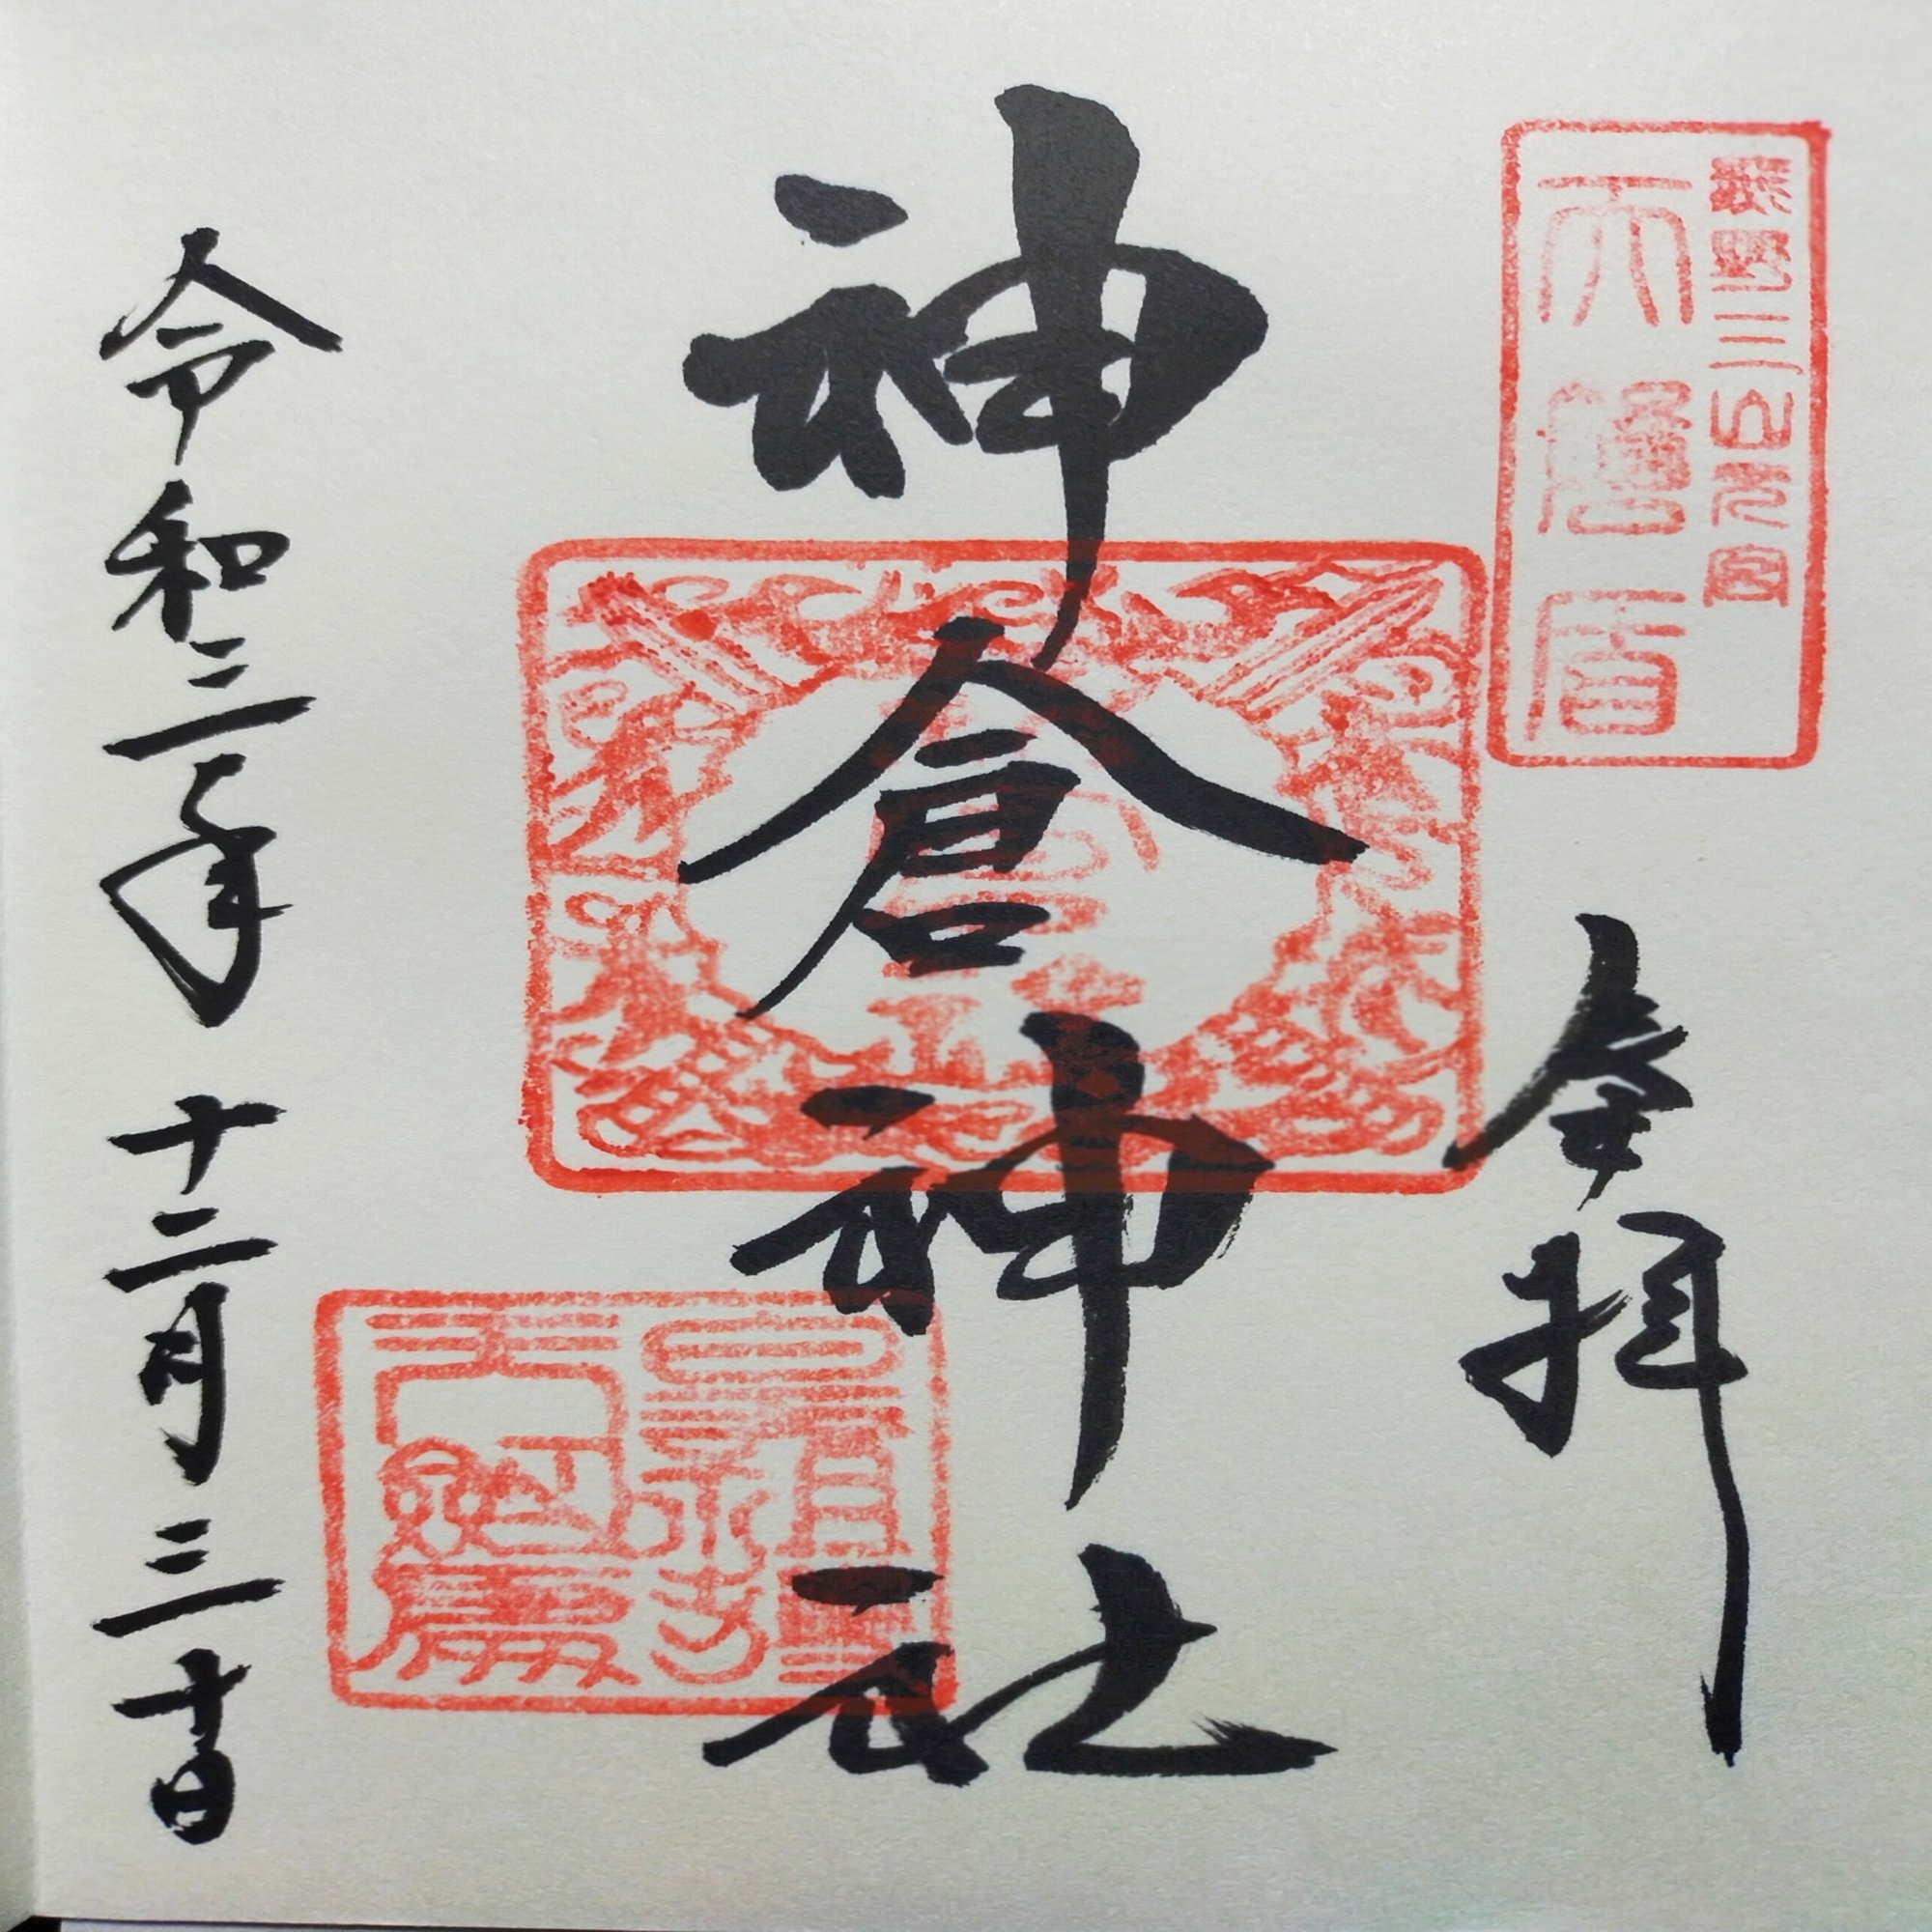 熊野三山元宮
天磐盾
奉拝
神倉神社
令和三年十二月三十日